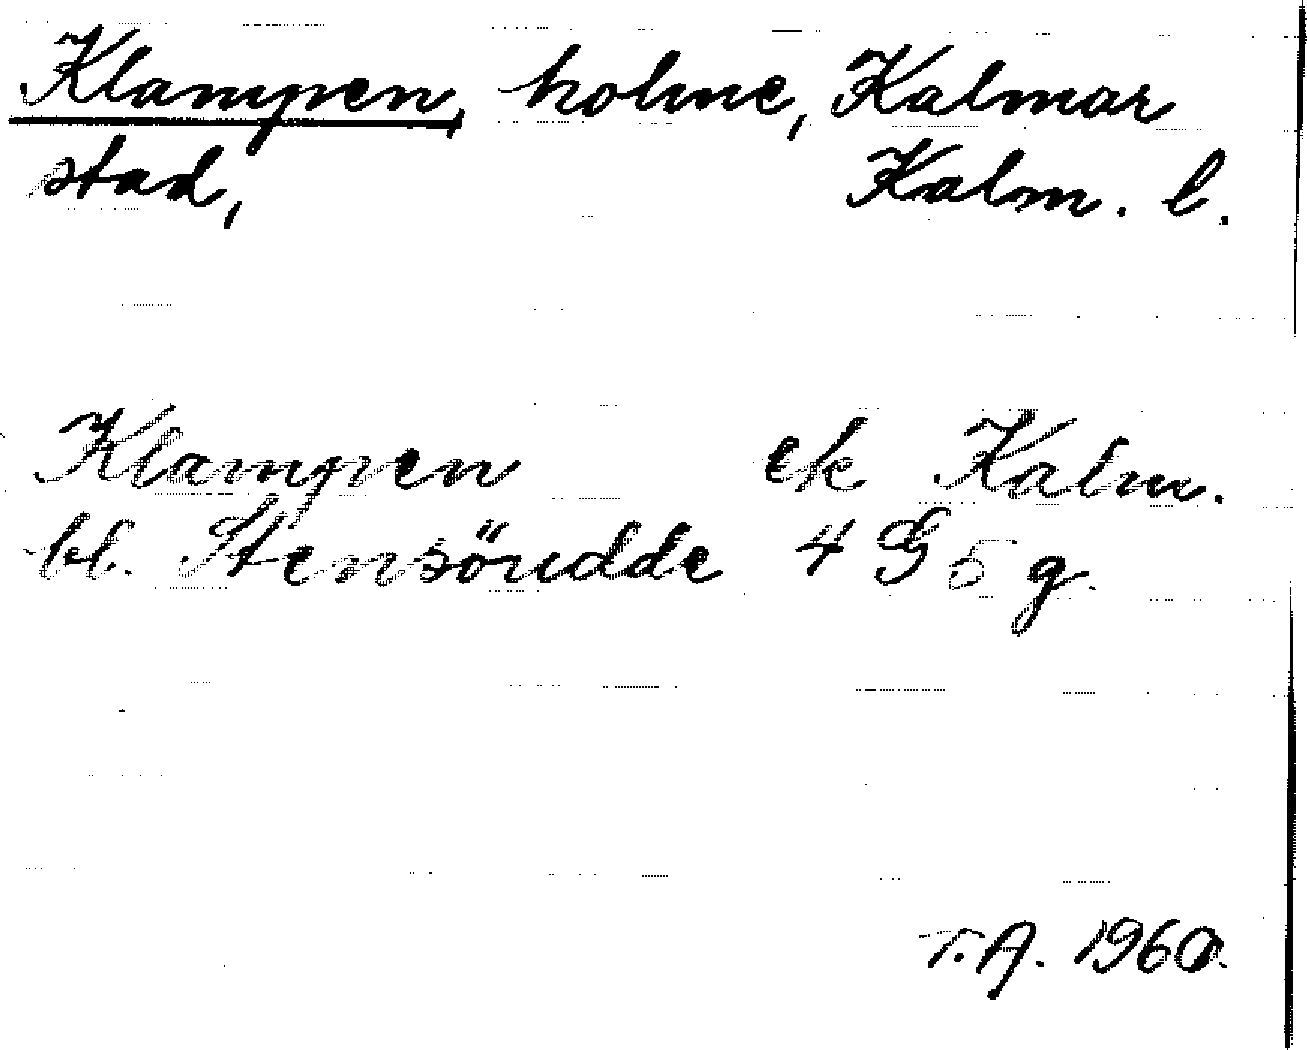 Klampen, holme, Kalmar
stad, Kalm. l.
Klampen ek Kalm.
bl. Stensöudde 4 G 5 g.
T.A. 1960.